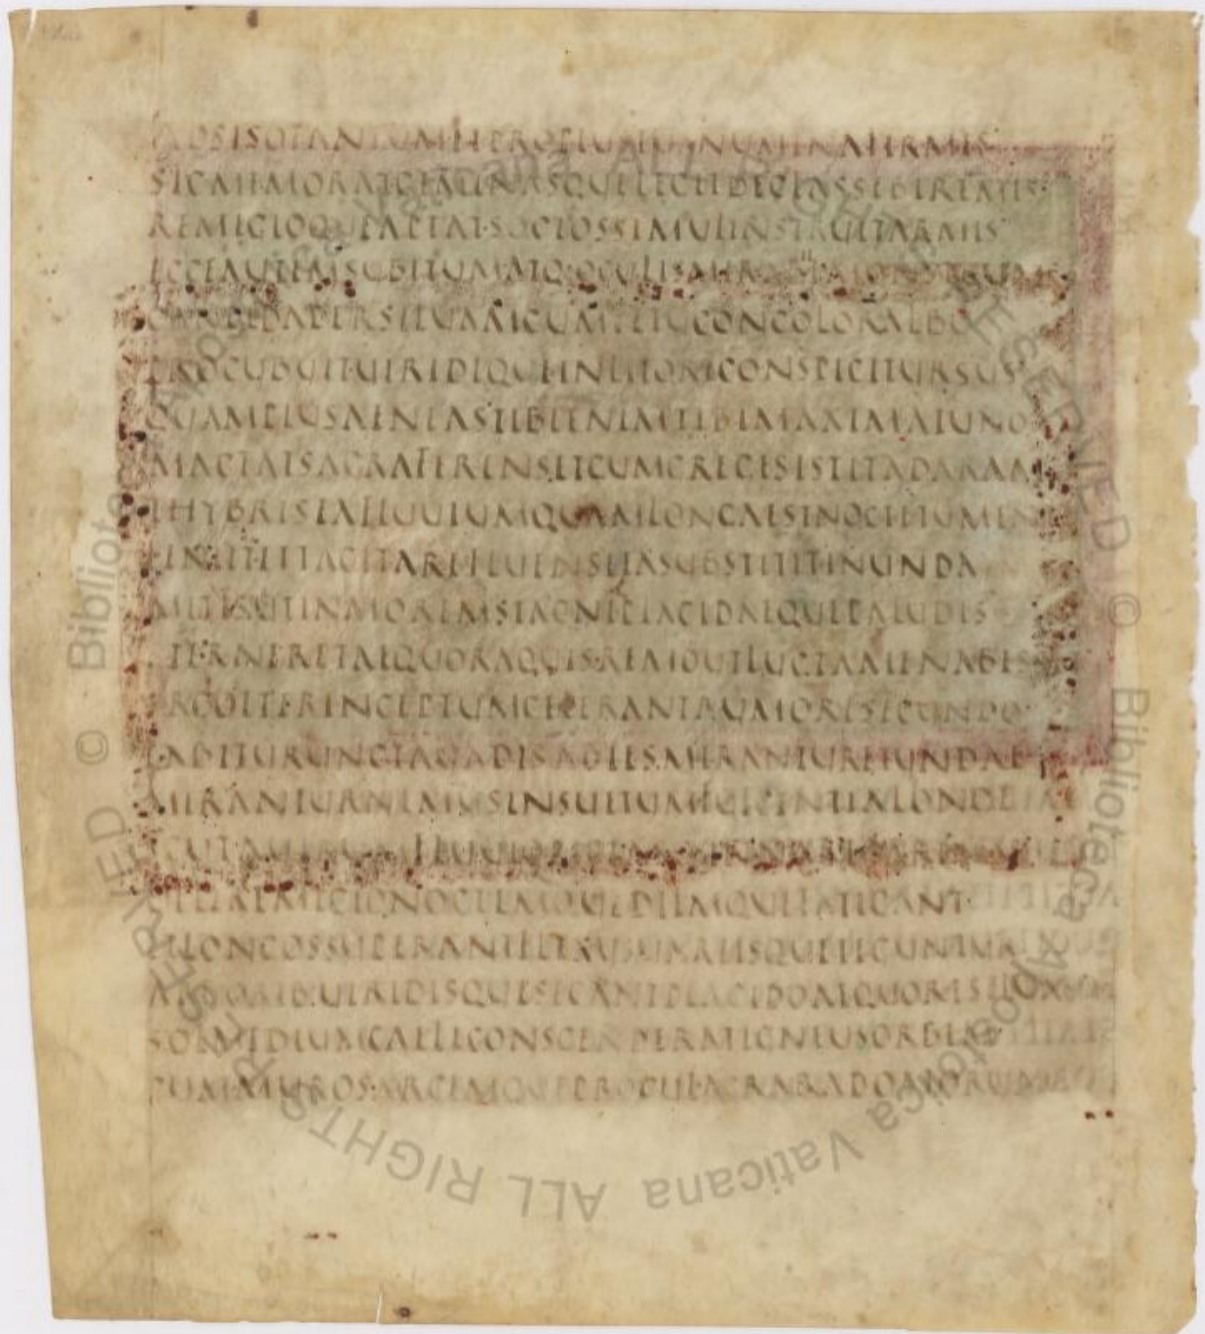 ADSISOTANTUMETPROPIUSNUMINAFIRMES
SICMEMORATGEMINASQUELEGITDECLASSEBIREMIS
REMIGIOQUEAPTATSOCIOSSIMULINSTRUITARMIS
ECCEAUTEMSUBITUMATQOCULISMIRABILEMONSTRUM
CANDIDAPERSILUAMCUMFETUCONCOLORALBO
PROCUBUITUIRIDIQUEINLITORECONSPICITURSUS
QUAMPIUSAENEASTIBIENIMTIBIMAXIMAIUNO
MACTATSACRAFERENSETCUMGREGESISTITADARAM
THYBRISEAFLUUIUMQUAMLONGAESTNOCTETUMEN
LENIITETTACITAREFLUENSITASUBSTITITUNDA
MITISUTINMOREMSTAGNIPLACIDAEQUEPALUDIS
STERNERETAEQUORAQUISREMOUTLUCTAMENABES
ERGOITERINCEPTUMCELERANTRUMORESECUNDO
LABITURUNCTAUADISABIESMIRANTURETUNDAE
MIRANTURNEMUSINSUETUMFULGENTIALONGE
SCUTAUIRUMFLUUIO
OLLIREMIGIONOCTEMQUEDIEMQUEFATIGANT
ETLONGOSSUPERANTFLEXUSUARIISQUETEGUNTUR
ARBORIBUSUIRIDISQUESECANTPLACIDOAEQUORESILUAS
SOLMEDIUMCAELICONSCENDERATIGNEUSORBEM
CUMMUROSARCEMQUEPROCULACRARADOMORUM
© Biblioteca Apostolica Vaticana ALL RIGHTS RESERVED © Biblioteca Apostolica Vaticana ALL RIGHTS RESERVED